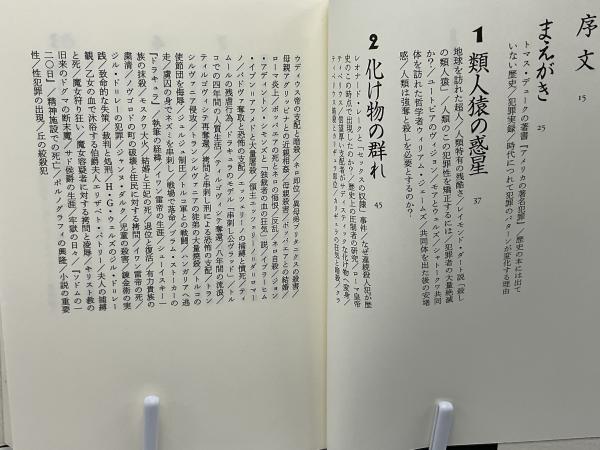 序文 15
まえがき 25
トマス・デュークの著書『アメリカの著名犯罪』/歴史の本には出て
いない歴史/犯罪実録/時代につれて犯罪のパターンが変化する理由
1 類人猿の惑星 37
地球を訪れた超人/人類特有の残酷さ/レイモンド・ダート説「殺し
の類人猿」/人類のこの犯罪性を矯正するには/犯罪者の大量絶滅
か?/ユートピアのヴィジョン/モア、ウェルズ/シャトーク共同
体を訪れた哲学者ウィリアム・ジェームズ/共同体を出た後の安堵
感/人類は強奪と殺しを必要とするのか?
2 化け物の群れ 45
レオナード・レークと「セックスの奴隷」事件/なぜ連続殺人犯が歴
史のこの時点で出現したのか?/歴史上の圧制者の研究/ローマ皇帝
ウディウス帝の支配と暗殺/ネロ即位/異母弟ブリタニクスの殺害/
母親アグリッピナとの近親相姦/母親の殺害/ポッパエアとの結婚/
ローマ炎上/ポッパエアの死とネロの悔恨/反乱/ネロ自殺/ジョン
・アディントン・シモンズと「独裁者の血の狂気」説/イブラヒム・
イブン・アフメドと大量殺戮/「騎士」エッツェリーノ/ダ・ロマー
ノ/パドヴァ奪取と恐怖の支配/エッツェリーノの捕縛と憤死/ティ
ムールの残虐行為/ドラキュラのモデル「串刺し公ヴラド」/トル
コでの四年間の人質生活/ティルゴヴィシテ奪還/八年間の流浪/
ティルゴヴィシテ再奪還/拷問と串刺し刑による恐怖の支配/トラン
シルヴァニア侵攻/トランシルヴァニア制圧/乞食の徒弟の大量焼殺/トルコの
使節団を侮辱/トルコ軍との戦闘/ハンガリアへ逃
走/虜囚の身でネズミを串刺し/戦場で落命/ブラム・ストーカーの
『ドラキュラ』執筆の経緯/イワン雷帝の生涯/シューイスキー一
族の抹殺/モスクワ大火/結婚と王妃の死/退位と復活/有力貴族の
粛清/ノヴゴロドの町の破壊と住民に対する拷問/イワン雷帝の死/
ジル・ド・レーの犯罪/ジャンヌ・ダルク/児童の殺害/錬金術の実
践/致命的な失策/裁判と処刑/H・G・ウェルズのジル・ド・レー
観/乙女の血で沐浴する伯爵夫人エリザベート・バートリ/夫人の捕縛
と死/魔女狩り狂い/魔女容疑者に対する拷問と陵辱/キリスト教の
旧来のドグマの断末魔/サド侯爵の生涯/牢獄の日々/『ソドムの一
二〇日』/精神施設での死/ポルノグラフィの興隆/小説の重要
性/性犯罪の出現/丘の絞殺犯